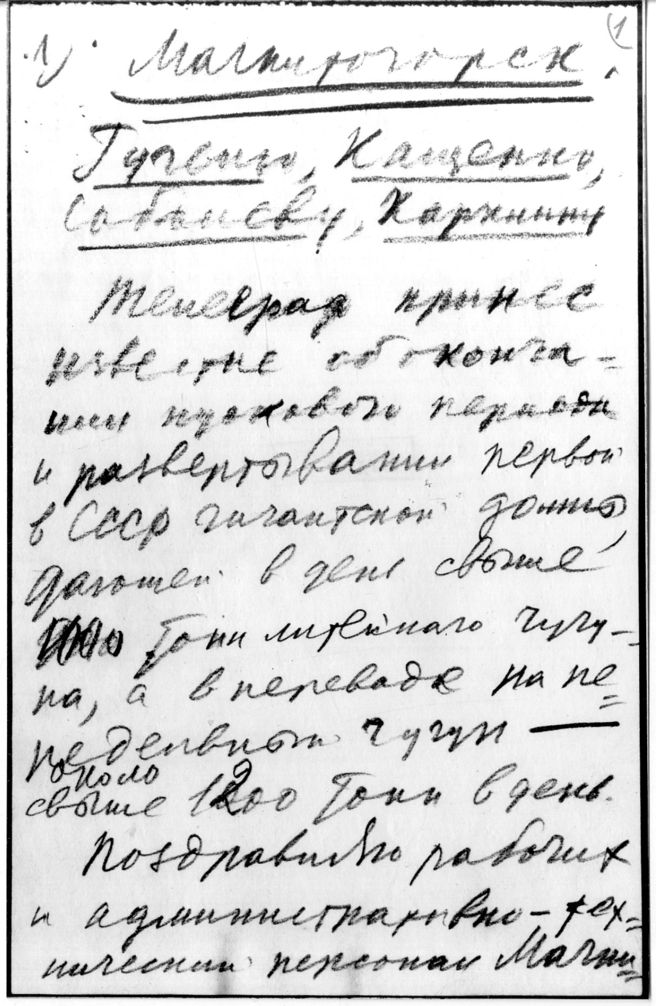 1
1) Магнитогорск.
Гугелию, Кащенко,
Собынсеву, Харкнину
Телеграф принес
известие об оконча-
нии пускового периода
и развертывании первой
в СССР гигантской домны,
дающей в день свыше
1000 тонн литейного чугу-
на, а в переводе на пе-
редельный чугун —
около
свыше 1200 тонн в день.
Поздравляю рабочих
и административно-тех-
нический персонал Магни-